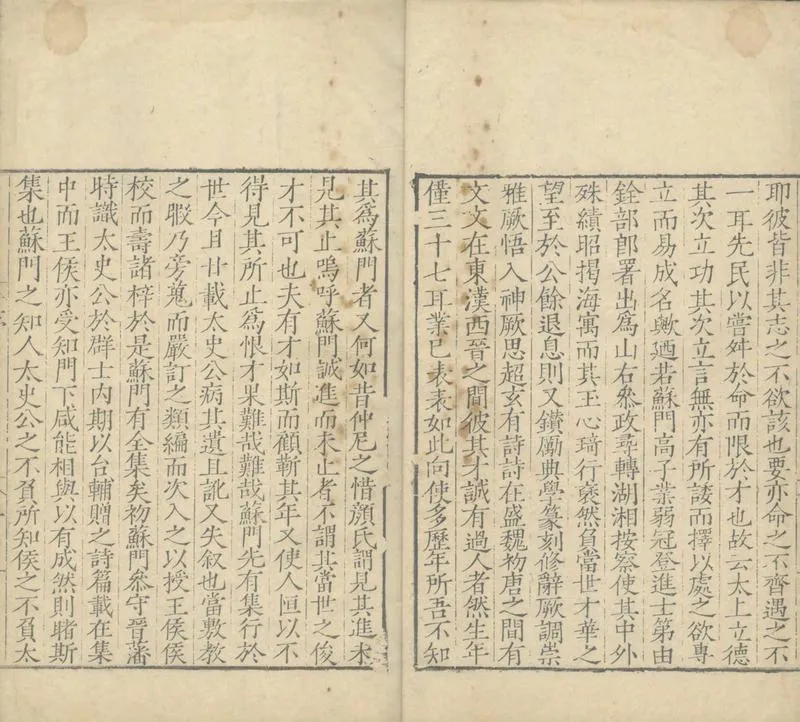 耶彼皆非其志之不欲該也要亦命之不齊遇之不
一耳先民以嘗舛於命而限於才也故云太上立德
其次立功其次立言無亦有所諉而擇以處之欲專
立而易成名歟廼若蘇門高子業弱冠登進士第由
銓部郎署出為山右叅政尋轉湖湘按察使其中外
殊績昭揭海寓而其玉心琦行褎然負當世才華之
望至於公餘退息則又鑚勵典學篆刻修辭厥調崇
雅厥悟入神厥思超玄有詩詩在盛魏初唐之間有
文文在東漢西晉之間彼其才誠有過人者然生年
僅三十七耳業已表表如此向使多歷年所吾不知
其為蘇門者又何如昔仲尼之惜顏氏謂見其進未
見其止嗚呼蘇門誠進而未止者不謂其當世之俊
才不可也夫有才如斯而顧靳其年又使人恒以不
得見其所止為恨才果難哉難哉蘇門先有集行於
世今且廿載太史公病其遺且訛又失叙也當敷教
之暇乃旁蒐而嚴訂之類編而次入之以授王侯侯
校而壽諸梓於是蘇門有全集矣初蘇門叅守晉藩
時識太史公於群士内期以台輔贈之詩篇載在集
中而王侯亦受知門下咸能相與以有成然則睹斯
集也蘇門之知人太史公之不負所知侯之不負太